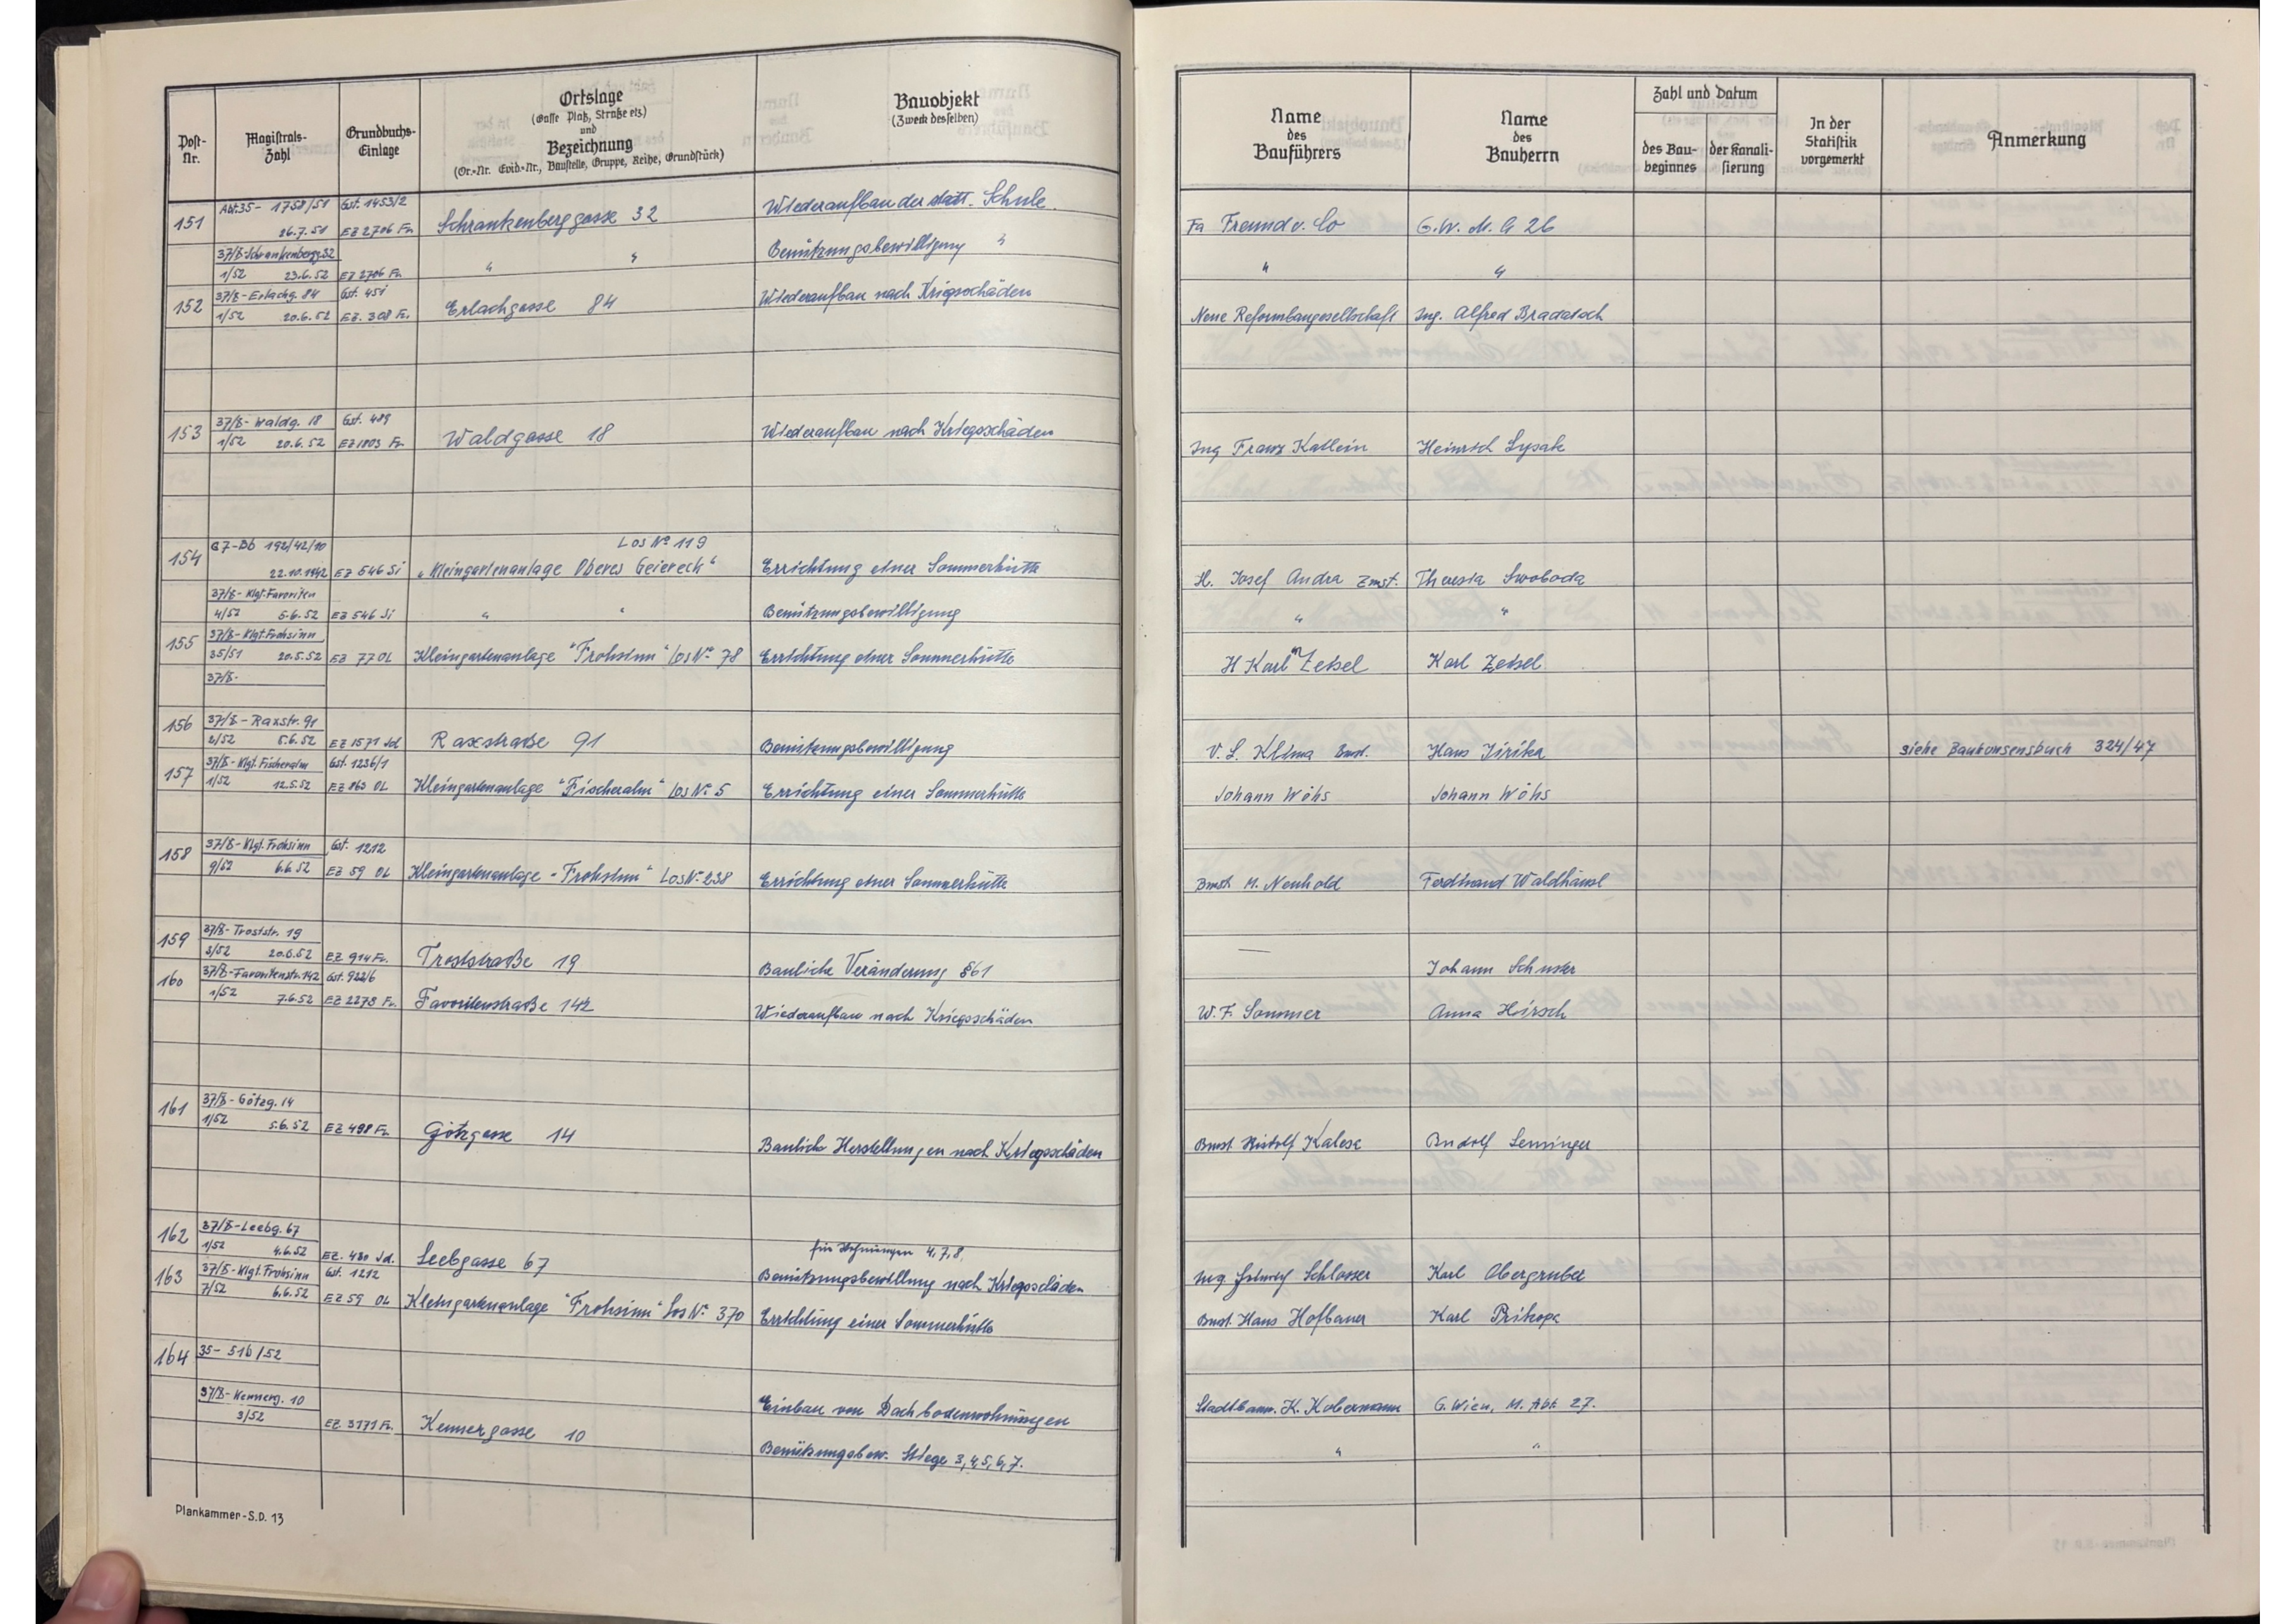 Post-Nr. Magistrats-Zahl Grundbuchs-Einlage Ortslage (Gasse Platz, Straße etz.) und Bezeichnung (Or.-Nr. Evid.-Nr., Baustelle, Gruppe, Reihe, Grundstück) Bauobjekt (Zweck desselben) Name des Bauführers Name des Bauherrn Zahl und Datum des Bau-beginnes der Kanali-sierung In der Statistik vorgemerkt Anmerkung
151 Abt.35- 1758/51 Gst. 1453/2 Wiederaufbau der städt. Schule
26.7.51 EZ 2706 Fa. Schrankenberggasse 32 Fa Freund u. Co G.W. M.A 26
37/B-Schrankenbergg.32
1/52 23.6.52 EZ 2706 Fa. " " Benützungsbewilligung " " "
152 37/B-Erlachg. 84 Gst. 451
1/52 20.6.52 EZ. 308 Fa. Erlachgasse 84 Wiederaufbau nach Kriegsschäden Neue Reformbaugesellschaft Ing. Alfred Bradatsch
153 37/B- Waldg. 18 Gst. 489
1/52 20.6.52 EZ 1803 Fa. Waldgasse 18 Wiederaufbau nach Kriegsschäden Ing Franz Katlein Heinrich Lysak
154 G7-Bb 192/42/10 Los No 119
22.10.1942 EZ 546 Si "Kleingartenanlage Oberes Geiereck" Errichtung einer Sommerhütte H. Josef Andra Zmst. Theresia Swoboda
37/B- Klgt.Favoriten
4/52 5.6.52 EZ 546 Si " " Benützungsbewilligung " "
155 37/B-Klgt.Frohsinn
35/51 20.5.52 EZ 77 OL Kleingartenanlage "Frohsinn" Los No 78 Errichtung einer Sommerhütte H Karl Zeisel Karl Zeisel
37/B-
156 37/B-Raxstr. 91
2/52 5.6.52 EZ 1571 Jd Raxstraße 91 Benützungsbewilligung V. L. Klima Bmst. Hans Jirika siehe Baukonsensbuch 324/47
157 37/B-Klgt. Fischeralm Gst. 1236/1
1/52 12.5.52 EZ 863 OL Kleingartenanlage "Fischeralm" Los No 5 Errichtung einer Sommerhütte Johann Wöhs Johann Wöhs
158 37/B-Klgt. Frohsinn Gst. 1212
9/52 6.6.52 EZ 59 OL Kleingartenanlage "Frohsinn" Los No 238 Errichtung einer Sommerhütte Bmst M. Neuhold Ferdinand Waldhäusl
159 37/B-Troststr. 19
3/52 20.6.52 EZ 914 Fa. Troststraße 19 Bauliche Veränderung §61 — Johann Schuster
160 37/B-Favoritenstr.142 Gst. 922/6
1/52 7.6.52 EZ 2278 Fa. Favoritenstraße 142 Wiederaufbau nach Kriegsschäden W. F. Sommer Anna Hirsch
161 37/B-Götzg. 14
1/52 5.6.52 EZ 498 Fa. Götzgasse 14 Bauliche Herstellungen nach Kriegsschäden Bmst Rudolf Rudolf Leninger
162 37/B-Leebg. 67 für Wohnungen 4,7,8,
1/52 4.6.52 EZ. 480 Jd. Leebgasse 67 Benützungsbewillung nach Kriegsschäden Ing. Schlosser Karl Obergruber
163 37/B-Klgt.Frohsinn Gst. 1212
7/52 6.6.52 EZ 59 OL Kleingartenanlage "Frohsinn" Los No 370 Errichtung einer Sommerhütte Bmst. Hans Hofbauer Karl Prikopa
164 35- 516/52
37/B-Kennerg. 10 Einbau von Dachbodenwohnungen Stadtbaum. K. Kobermann G. Wien, M. Abt. 27.
3/52 EZ. 3171 Fa. Kennergasse 10
Benützungsbew. Stiege 3,4,5,6,7. " "
Plankammer-S.D. 13